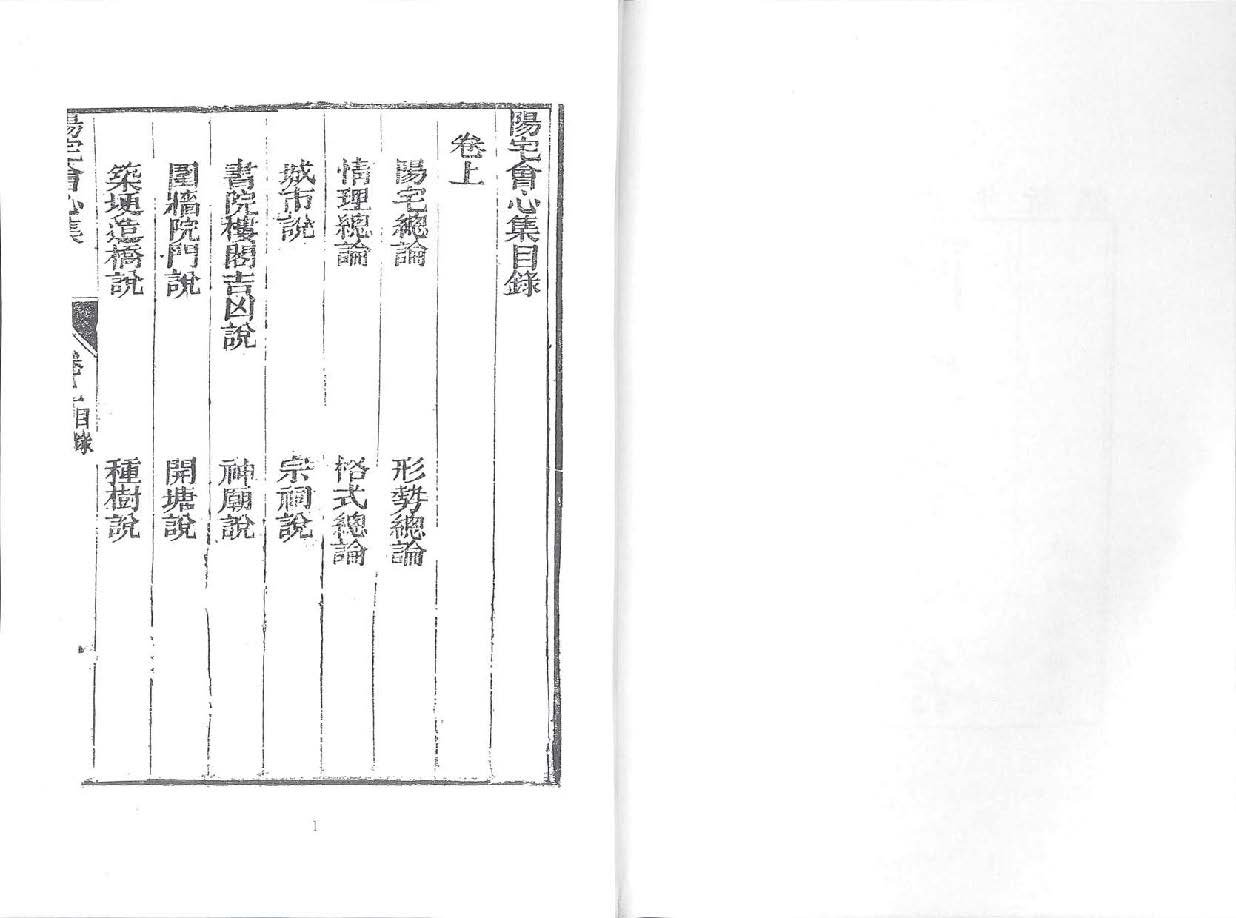 陽宅會心集目錄
卷上
陽宅總論 形勢總論
情理總論 格式總論
城市說 宗祠說
書院樓閣吉凶說 神廟說
圍牆院門說 開塘說
築埂造橋說 種樹說
陽宅會心集 卷上目錄
1